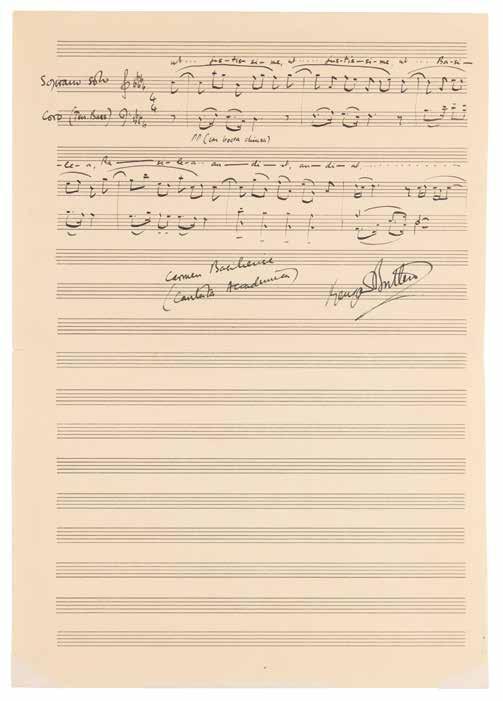 ut .... jus-tis-si-me, ut .... jus-tis-si-me, ut .... Ba-si-
Soprano solo
4 4
Coro (Ten. Bass)
pp (con bocca chiusa)
-le-a, Ba - si-le-a au - di-at, au-di-at
Carmen Basiliense
(Cantata Academica)
Benjamin Britten